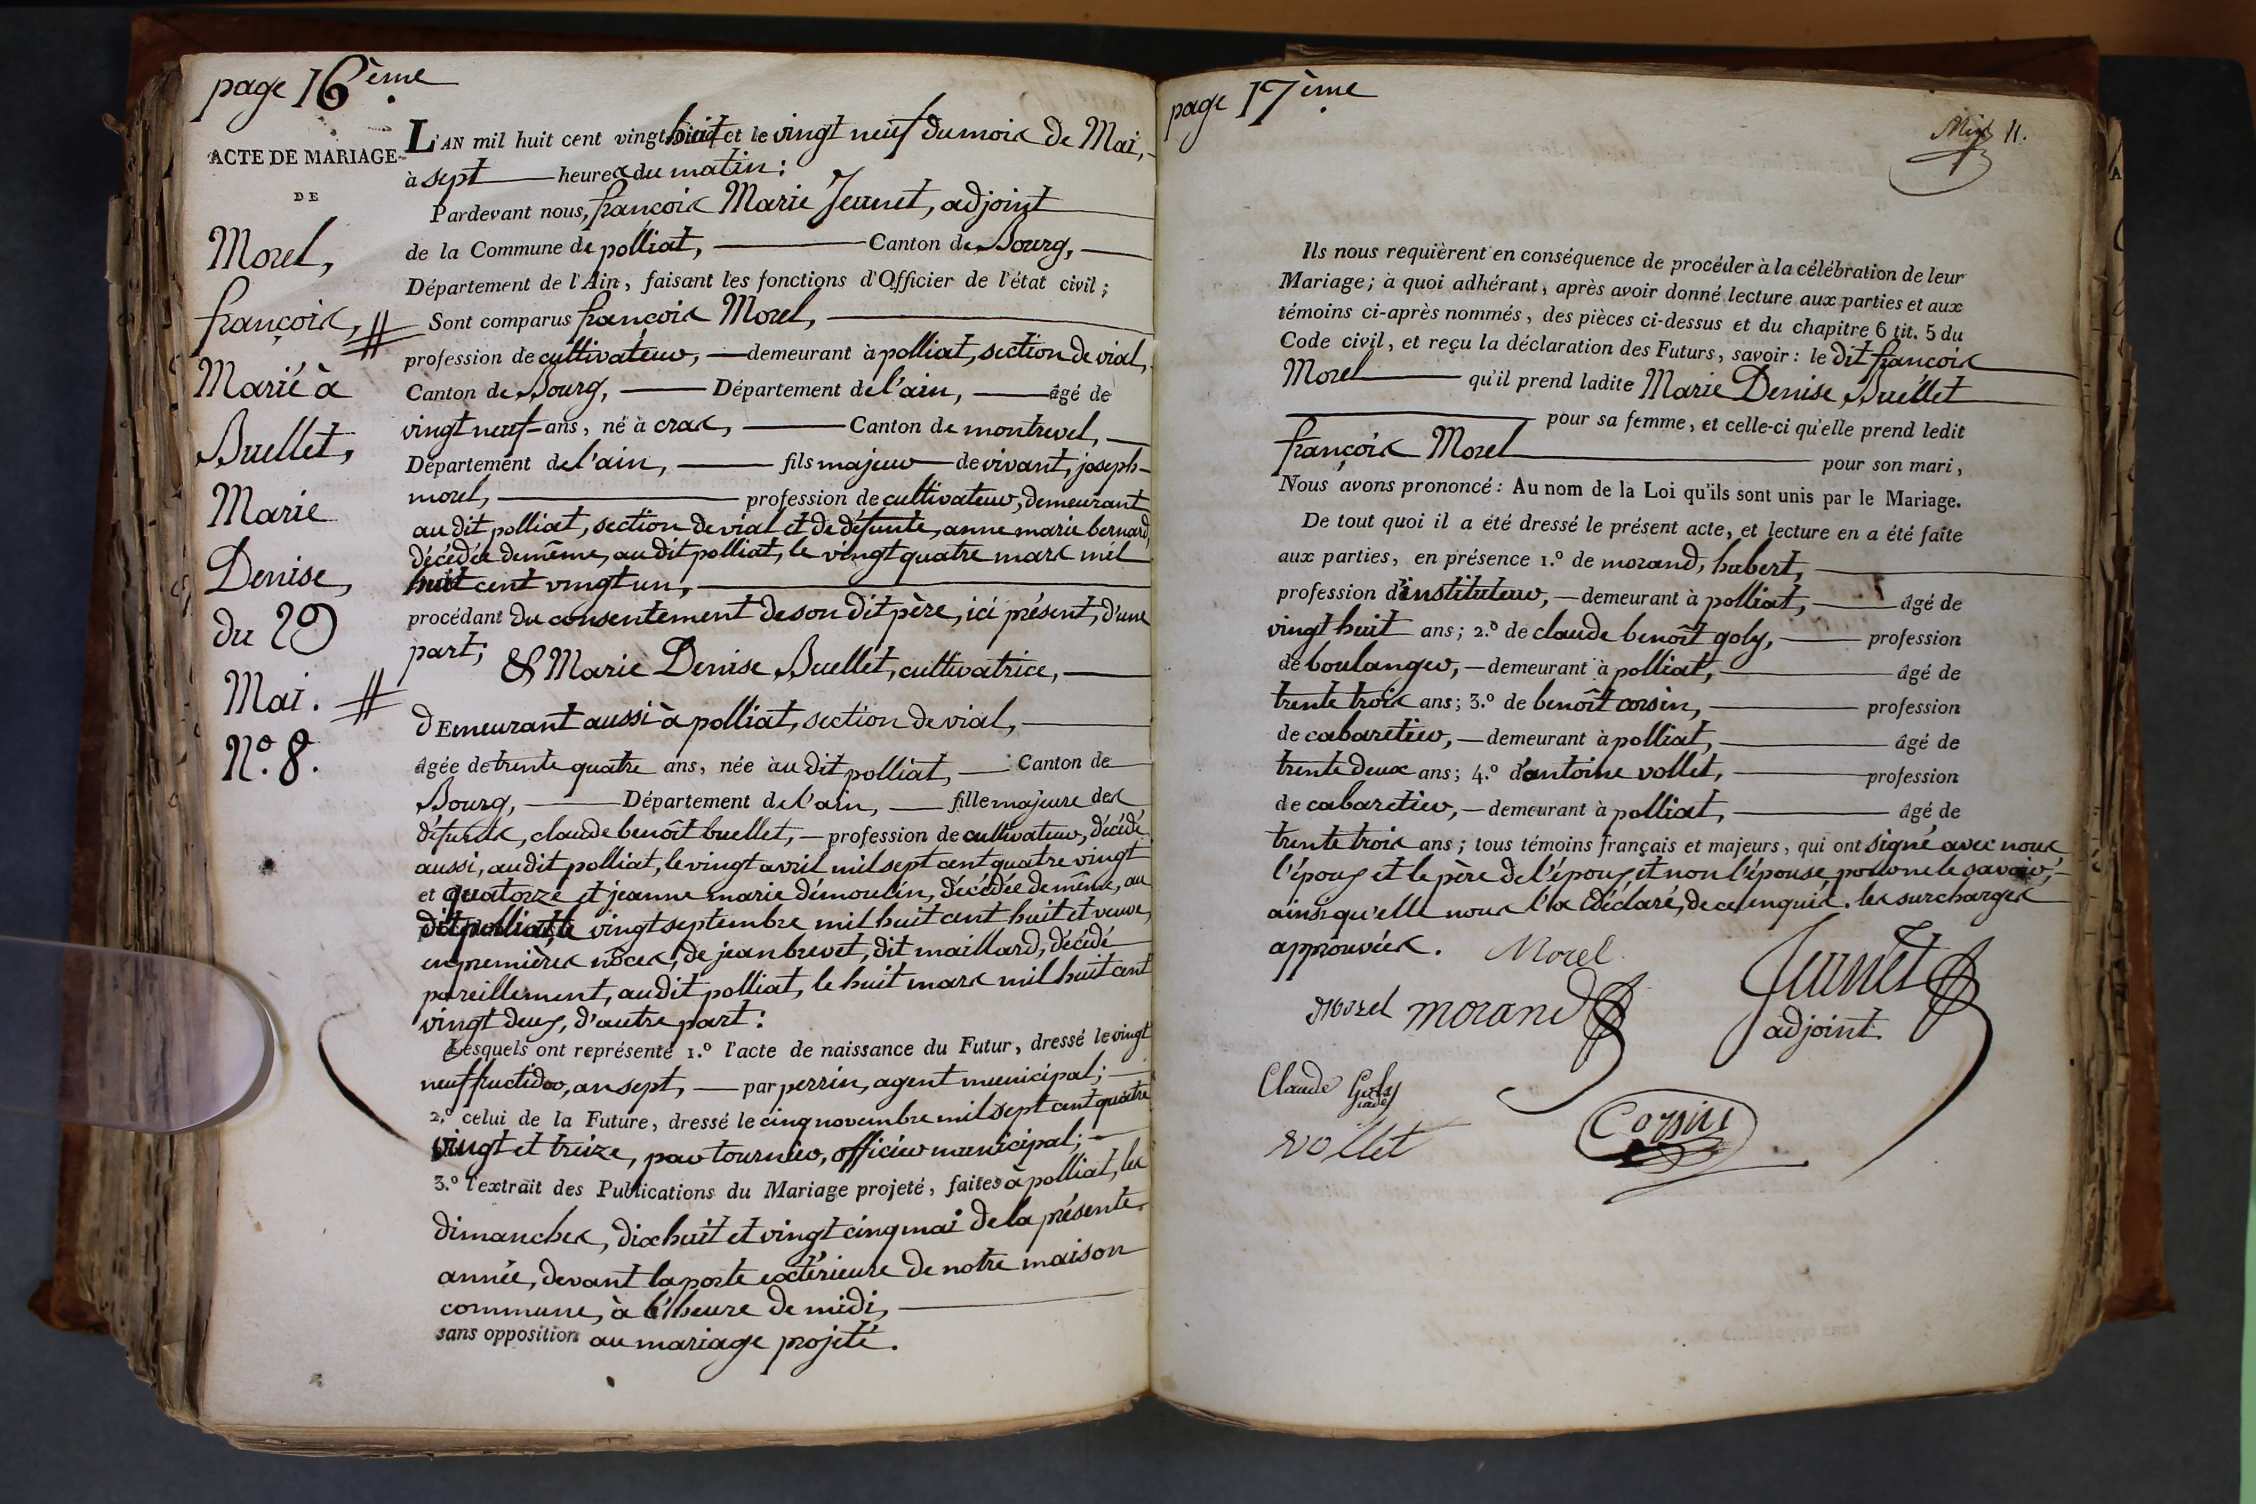 page 16ème
ACTE DE MARIAGE
DE
Morel,
françois,
Marié à
Buellet,
Marie
Denise,
du 29
Mai.
N.º 8.
L'AN mil huit cent vingt huit et le vingt neuf du mois de Mai,
à sept heures du matin :
Pardevant nous, françois Marie Jeunet, adjoint
de la Commune de polliat, Canton de Bourg,
Département de l'Ain, faisant les fonctions d'Officier de l'état civil ;
Sont comparus françois Morel,
profession de cultivateur, demeurant à polliat, section de vial,
Canton de Bourg, Département de l'ain, âgé de
vingt neuf ans, né à cras, Canton de montrevel,
Département de l'ain, fils majeur de vivant, joseph
morel, profession de cultivateur, demeurant
au dit polliat, section de vial et de défunte, anne marie bernard,
décédée de même, au dit polliat, le vingt quatre mars mil
huit cent vingt un,
procédant du consentement de son dit père, ici présent, d'une
part;
& Marie Denise Buellet, cultivatrice,
dEmeurant aussi à polliat, section de vial,
âgée de trente quatre ans, née au dit polliat, Canton de
Bourg, Département de l'ain, fille majeure des
défunts, claude benoît buellet, profession de cultivateur, décédé
aussi, au dit polliat, le vingt avril mil sept cent quatre vingt
et quatorze et jeanne marie démoulin, décédée de même, au
dit polliat, le vingt septembre mil huit cent huit et veuve,
en premières nôces, de jean brevet, dit maillard, décédé
pareillement, au dit polliat, le huit mars mil huit cent
vingt deux, d'autre part :
Lesquels ont représenté 1.º l'acte de naissance du Futur, dressé le vingt
neuf fructidor, an sept, par perrin, agent municipal ;
2.º celui de la Future, dressé le cinq novembre mil sept cent quatre
vingt et treize, par tournier, officier municipal ;
3.º l'extrait des Publications du Mariage projeté, faites à polliat, les
dimanches, dix huit et vingt cinq mai de la présente
année, devant la porte extérieure de notre maison
commune, à l'heure de midi,
sans opposition au mariage projeté.
page 17ème
11.
Ils nous requièrent en conséquence de procéder à la célébration de leur
Mariage ; à quoi adhérant, après avoir donné lecture aux parties et aux
témoins ci-après nommés, des pièces ci-dessus et du chapitre 6 tit. 5 du
Code civil, et reçu la déclaration des Futurs, savoir : le dit françois
Morel qu'il prend ladite Marie Denise Buellet
pour sa femme, et celle-ci qu'elle prend ledit
françois Morel pour son mari,
Nous avons prononcé : Au nom de la Loi qu'ils sont unis par le Mariage.
De tout quoi il a été dressé le présent acte, et lecture en a été faite
aux parties, en présence 1.º de morand, hubert,
profession d'instituteur, demeurant à polliat, âgé de
vingt huit ans ; 2.º de claude benoît goly, profession
de boulanger, demeurant à polliat, âgé de
trente trois ans ; 3.º de benoît corsin, profession
de cabaretier, demeurant à polliat, âgé de
trente deux ans ; 4.º d'antoine vollet, profession
de cabaretier, demeurant à polliat, âgé de
trente trois ans ; tous témoins français et majeurs, qui ont signé avec nous
l'époux et le père de l'époux et non l'épouse pour ne le savoir,
ainsi qu'elle nous l'a déclaré, de ce enquis. les surcharges
approuvées. Morel
Jeunet
Morel morand
adjoint
Claude Goly
Corsin
vollet